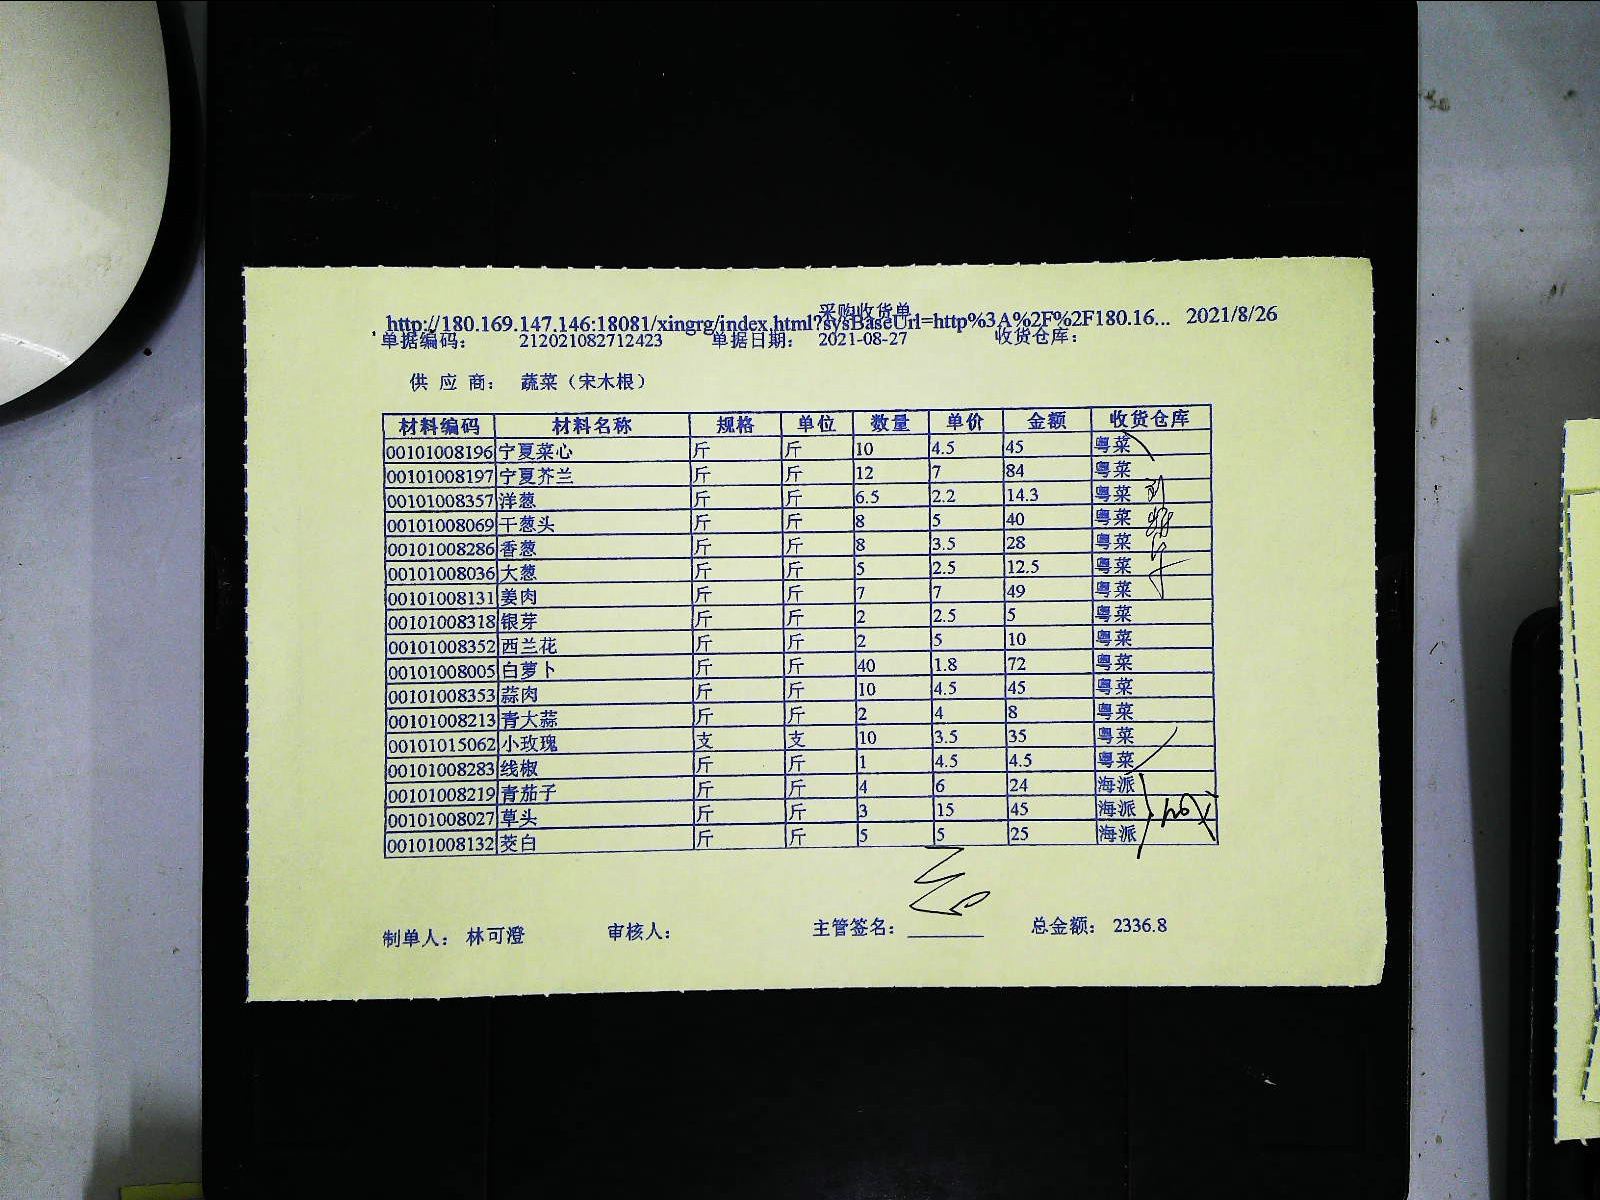 采购收货单
http://180.169.147.146:18081/xingrg/index.html?sysBaseUrl=http%3A%2F%2F180.16... 2021/8/26
单据编码: 212021082712423 单据日期: 2021-08-27 收货仓库:
供 应 商: 蔬菜（宋木根）
材料编码 材料名称 规格 单位 数量 单价 金额 收货仓库
00101008196 宁夏菜心 斤 斤 10 4.5 45 粤菜
00101008197 宁夏芥兰 斤 斤 12 7 84 粤菜
00101008357 洋葱 斤 斤 6.5 2.2 14.3 粤菜
00101008069 干葱头 斤 斤 8 5 40 粤菜
00101008286 香葱 斤 斤 8 3.5 28 粤菜
00101008036 大葱 斤 斤 5 2.5 12.5 粤菜
00101008131 姜肉 斤 斤 7 7 49 粤菜
00101008318 银芽 斤 斤 2 2.5 5 粤菜
00101008352 西兰花 斤 斤 2 5 10 粤菜
00101008005 白萝卜 斤 斤 40 1.8 72 粤菜
00101008353 蒜肉 斤 斤 10 4.5 45 粤菜
00101008213 青大蒜 斤 斤 2 4 8 粤菜
00101015062 小玫瑰 支 支 10 3.5 35 粤菜
00101008283 线椒 斤 斤 1 4.5 4.5 粤菜
00101008219 青茄子 斤 斤 4 6 24 海派
00101008027 草头 斤 斤 3 15 45 海派
00101008132 茭白 斤 斤 5 5 25 海派
制单人: 林可澄 审核人: 主管签名: 总金额: 2336.8